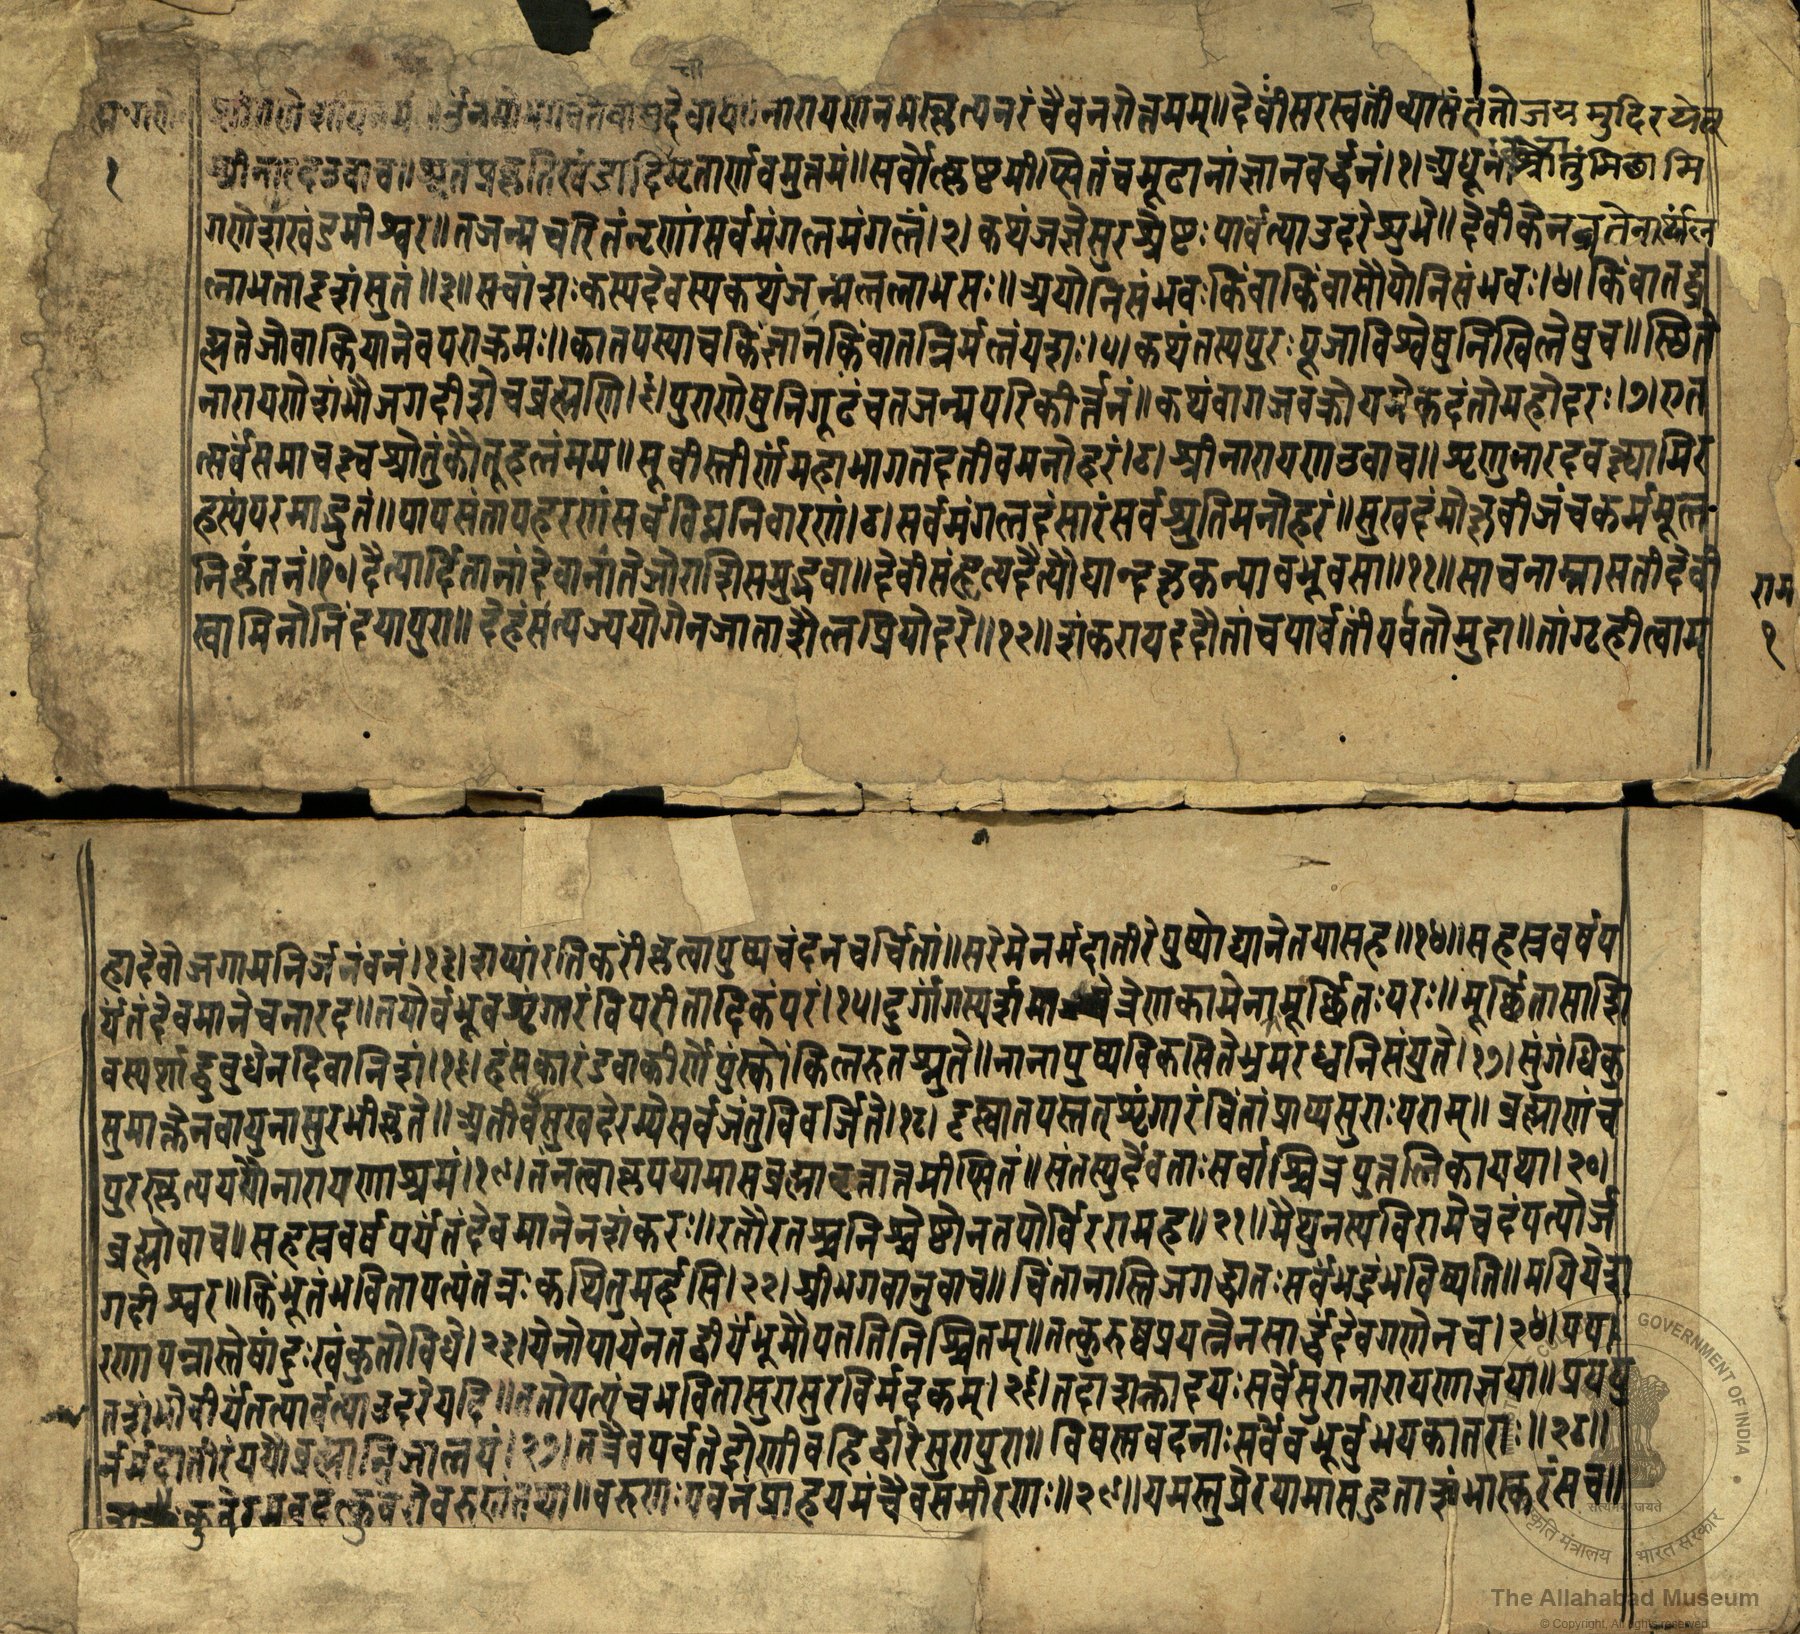 श्रीगणेशायनमः॥ॐनमोभगवतेवासुदेवाय॥नारायणंनमस्कृत्यनरंचैवनरोत्तमम्॥देवींसरस्वतींव्यासंततोजयमुदिरयेत्
१
श्रीनारदउवाच॥श्रुतंप्रकृतिखंडादिमृतार्णवमुत्तमं॥सर्वोत्कृष्टमीप्सितंचमूढानांज्ञानवर्द्धनं।१।अधूनाश्रोतुंमिछामि
गणेशखंडमीश्वर॥तजन्मचरितंनृणांसर्वमंगलमंगलं।२।कथंजज्ञेसुरश्रेष्टःपार्वत्याउदरेशुभे॥देवीकेन
लाभतादृशंसुतं॥३॥सचांशःकस्यदेवस्यकथंजन्मललाभसः॥अयोनिसंभवःकिंवाकिंवासौयोनिसंभवः।४।किंवातद्ब्र
ह्मतेजोवाकियानेवपराक्रमः॥कातपस्याचकिंज्ञानंकिंवातन्निर्मलंयशः।५।कथंतस्यपुरःपूजाविश्वेषुनिखिलेषुच॥स्थिते
नारायणेशंभौजगदीशेचब्रह्मणि।६।पुराणेषुनिगूढंचतजन्मपरिकीर्त्तनं॥कथंवागजवक्रोयमेकदंतोमहोदरः।७।एत
त्सर्वंसमाचक्ष्वश्रोतुंकौतूहलंमम॥सूवीस्तीर्णंमहाभागतदतीवमनोहरं।८।श्रीनारायणउवाच॥शृणुनारदवक्ष्यामिर
हस्यंपरमाद्भुतं॥पापसंतापहरणंसर्वविघ्ननिवारणं।९।सर्वमंगलदंसारंसर्वश्रुतिमनोहरं॥सुखदंमोक्षबीजंचकर्ममूल
निकृंतनं।१०।दैत्यार्दितानांदेवानांतेजोराशिसमुद्भवा॥देवीसंहृत्यदैत्यौघान्दक्षकन्यावभूवसा॥११॥साचनाम्नासतीदेवी
राम
स्वामिनोनिंदयापुरा॥देहंसंत्यज्ययोगेनजाताशैलप्रियोदरे॥१२॥शंकरायददौतांचपार्वतींपर्वतोमुदा॥तांगृहीत्वाम
१
हादेवोजगामनिर्जनंवनं।१३।शय्यांरतिकरींकृत्वापुष्पचंदनचर्चितां॥सरेमेनर्मदातीरेपुष्पोद्यानेतयासह॥१४॥सहस्रवर्षप
र्यंतंदेवमानेचनारद॥तयोर्वभूवशृंगारंविपरीतादिकंपरं।१५।दुर्गांगस्पर्शमात्रेणकामेनामूर्छितःपरः॥मूर्छितासाशि
वस्पर्शाद्बुबुधेनदिवानिशं।१६।हंसकारंडवाकीर्णेपुंस्कोकिलरुतश्रुते॥नानापुष्पविकसितेभ्रमरध्वनिसंयुते।१७।सुंगंधिकु
सुमाक्तेनवायुनासुरभीकृते॥अतीवसुखदेरम्येसर्वजंतुविवर्जिते।१८।दृष्ट्वातपस्तत्शृंगारंचिंतांप्राप्यसुराःपराम्॥ब्रह्माणंच
पुरस्कृत्यययौनारायणाश्रमं।१९।तंनत्वाकथयामासब्रह्मावृत्तांतमीप्सितं॥संतस्थुर्देवताःसर्वाश्चित्रपुत्तलिकायथा।२०।
ब्रह्मोवाच॥सहस्रवर्षपर्यंतंदेवमानेनशंकरः॥रतौरतश्चनिश्चेष्टोनतपोर्विररामह॥२१॥मैथुनस्यविरामेचदंपत्योर्ज
गदीश्वर॥किंभूतंभवितापत्यंतन्नःकथयितुमर्हसि।२२।श्रीभगवानुवाच॥चिंतानास्तिजगद्धातःसर्वंभद्रंभविष्यति॥मयियेश
रणापन्नास्तेषांदुःखंकुतोविधे।२३।येनोपायेनतद्वीर्यंभूमौपततिनिश्चितम्॥तत्कुरुष्वप्रयत्नेनसार्द्धंदेवगणेनच।२४।यया
तशंभोवीर्यंतत्पार्वत्याउदरेयदि॥ततोपत्यंचभवितासुरासुरविमर्दकम्।२६।तदाशक्रादयःसर्वेसुरानारायणाज्ञया॥प्रययु
र्नर्मदातीरंययौब्रह्मानिजालयं।२७।तत्रैवपर्वतद्रोणीवहिर्द्वारेसुरापुरा॥विषस्मवदनाःसर्वेवभूवुर्भयकातराः॥२८॥
वरुणःपवनंप्राहयमंचैवसमीरणः॥२९॥यमस्तुप्रेरयामासहुताशंभास्करंसच॥
GOVERNMENT OF INDIA
सत्यमेव जयते
संस्कृति मंत्रालय भारत सरकार
The Allahabad Museum
© Copyright, All rights reserved